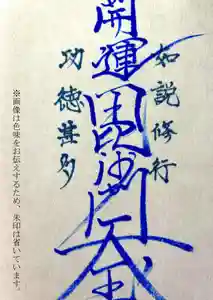 如説修行
開運毘沙門天王
功徳甚多
※画像は色味をお伝えするため、朱印は省いています。